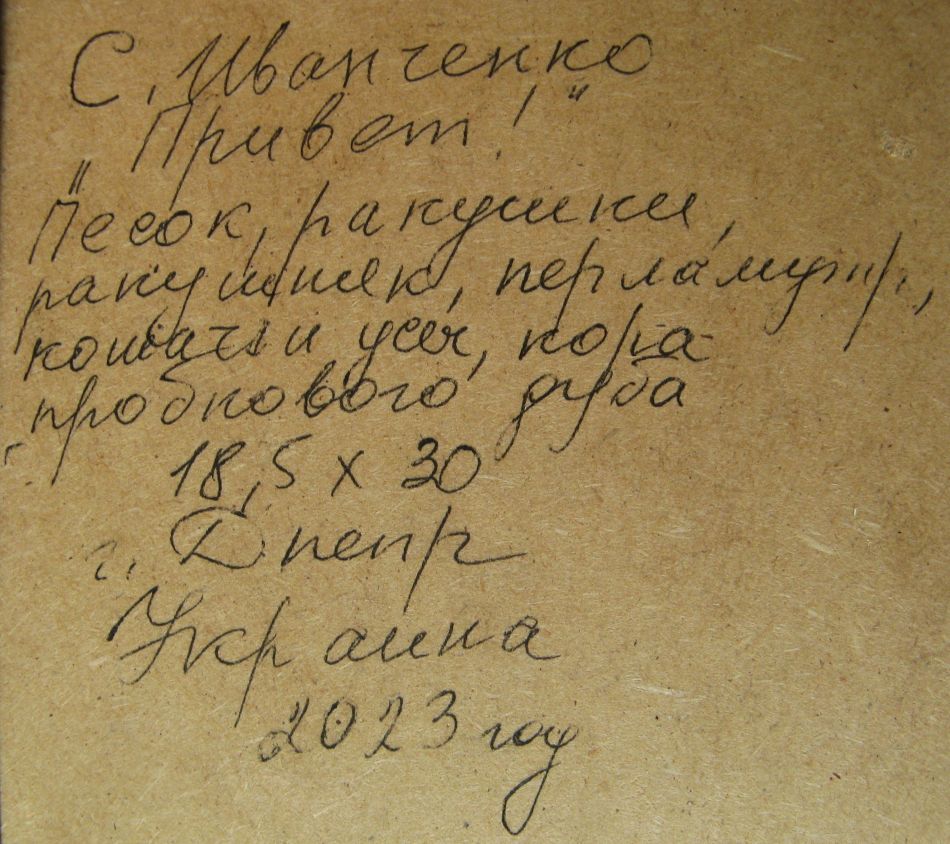 С. Иванченко
„Привет!"
Песок, ракушки,
ракушняк, перламутр,
кошачьи усы, кора
пробкового дуба
18,5 х 30
г. Днепр
Украина
2023 год